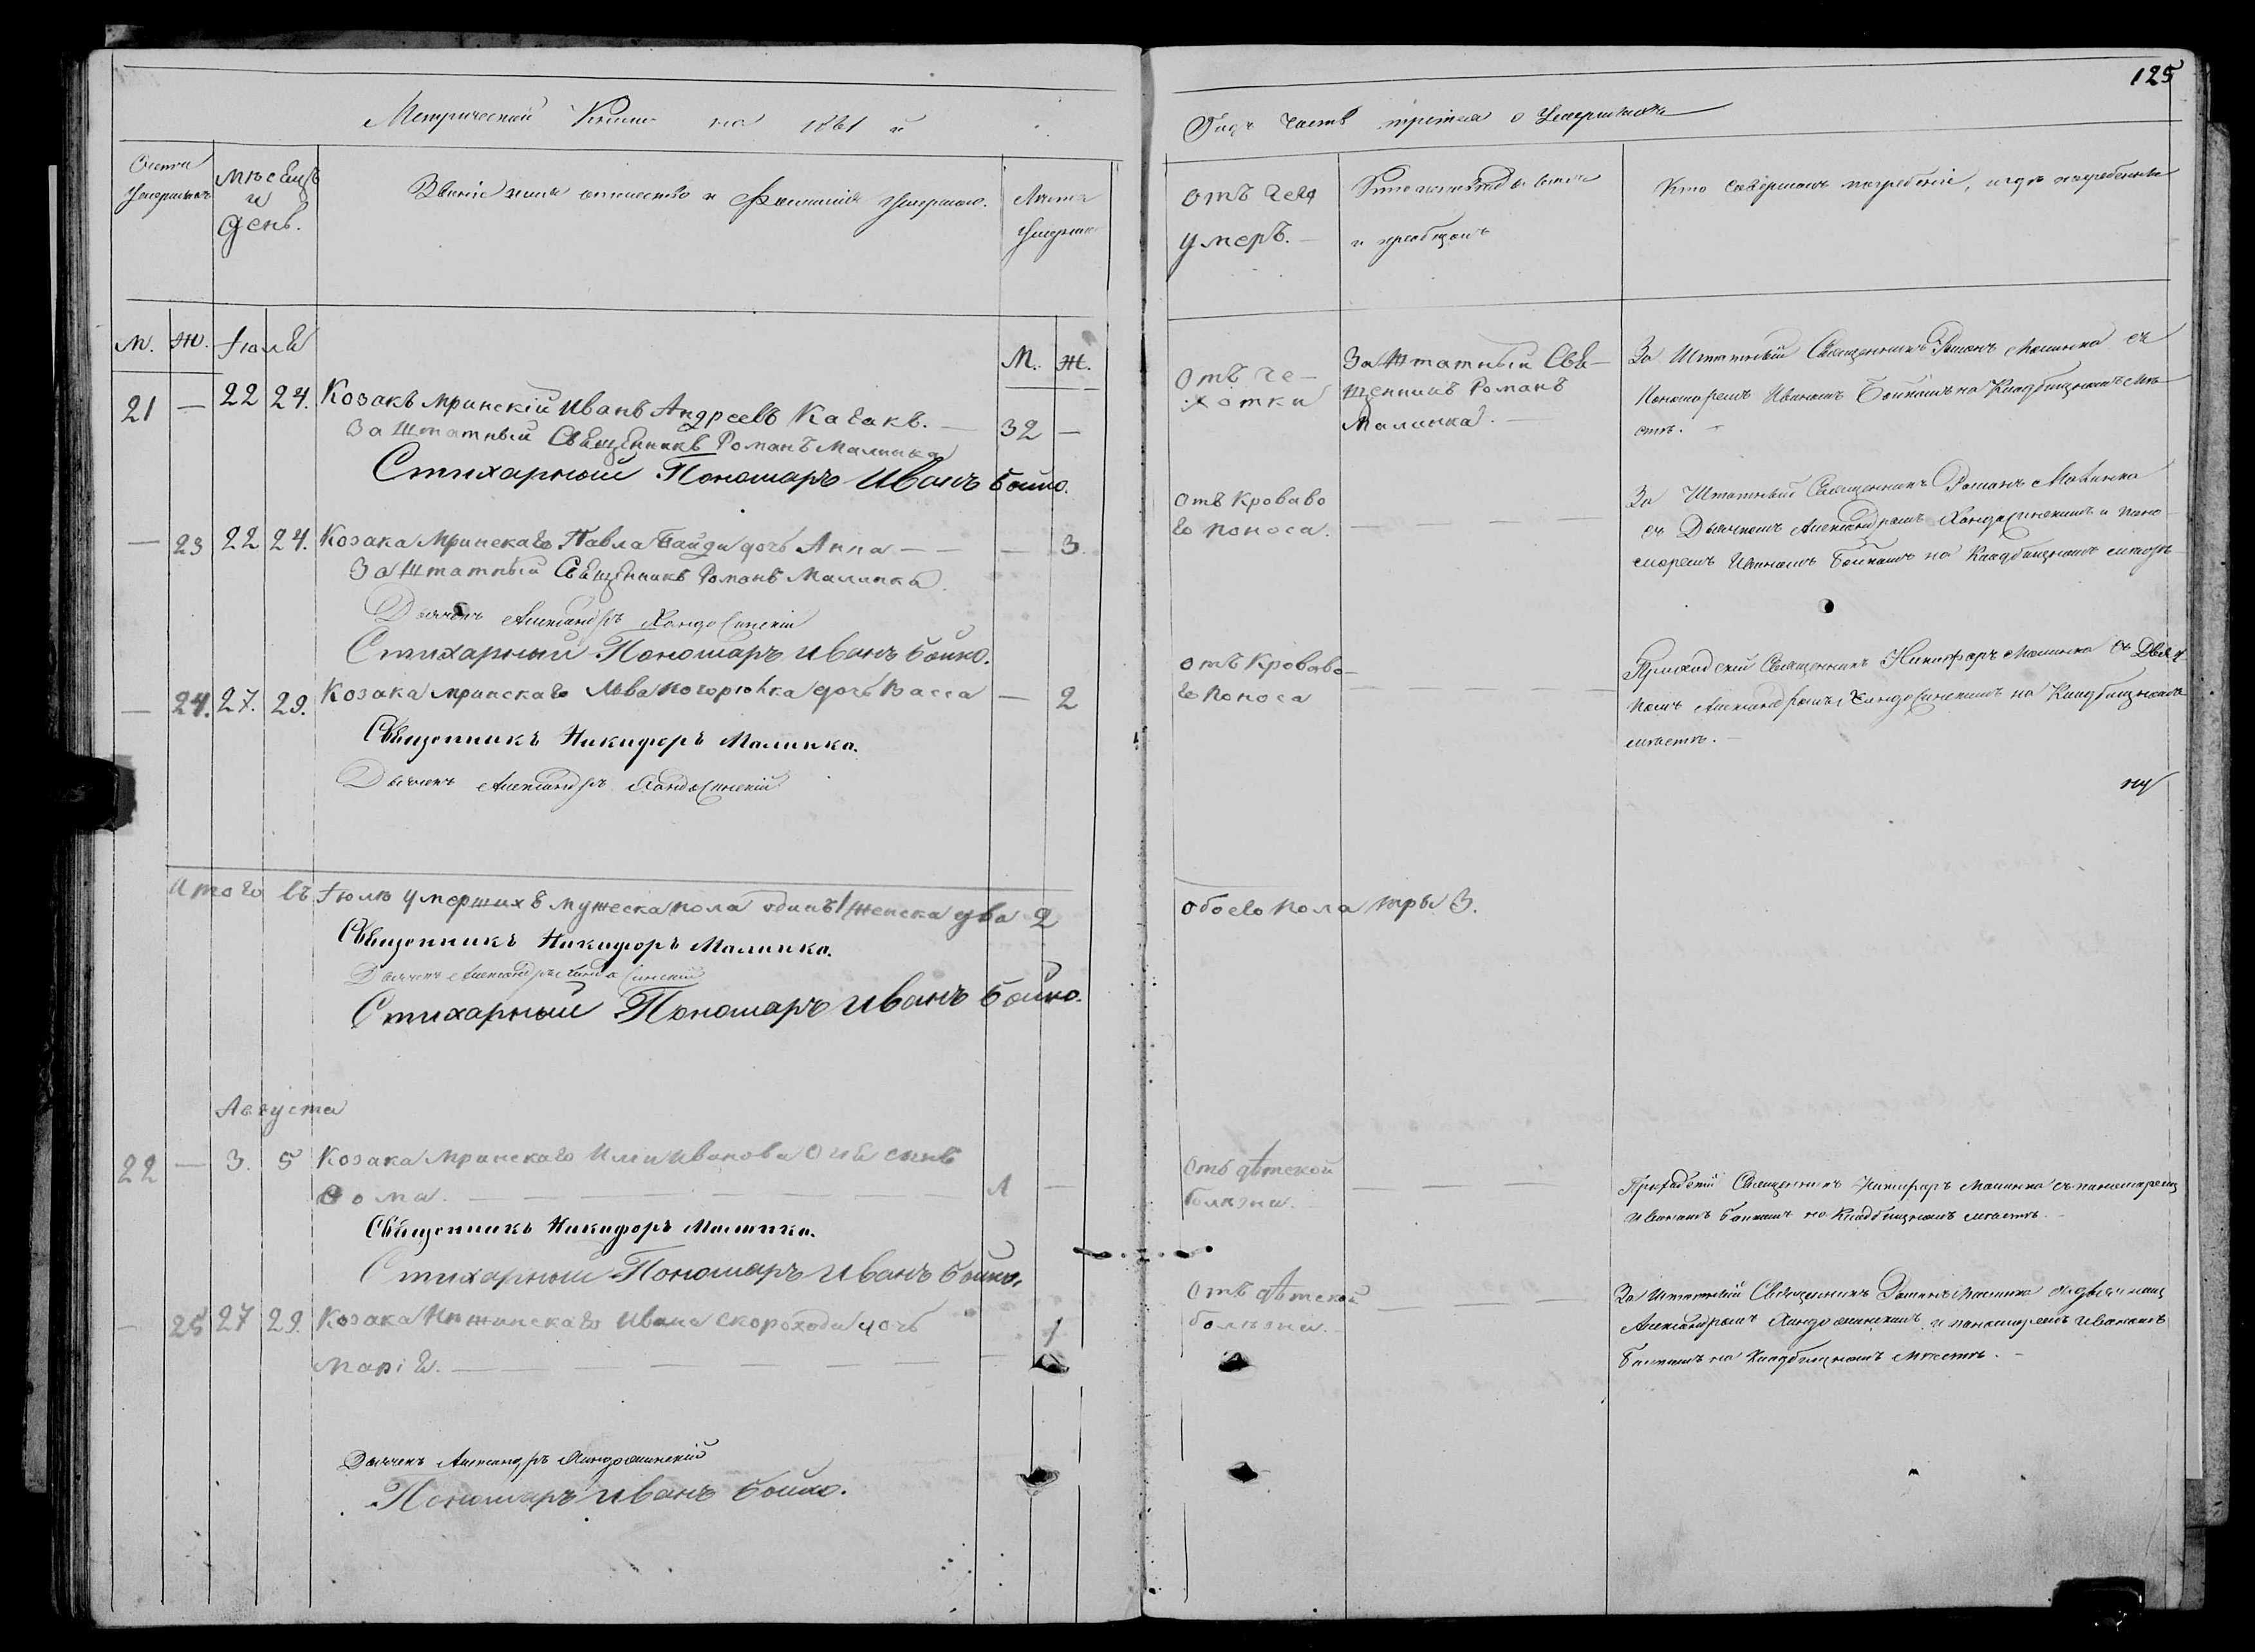 125
Метрической Книги на 1861 й
Годъ часть третія о Умершихъ
Счетъ
Умершихъ
мѣсяцъ
и
день.
Званіе имя отчество и Фамилія Умершаго.
Лѣта
Умершаго
отъ чего
умеръ.
Кто исповѣдывалъ
и пріобщалъ
Кто совершалъ погребеніе, и гдѣ погребены
М. Ж. Іюля
М. Ж.
21 — 22 24. Козакъ мринскій Иванъ Андреевъ Кабакъ. — 32 —
Заштатный Священникъ Романъ Малинка
Стихарный Пономарь Иванъ Бойко.
Отъ че-
хотки
Заштатный Свя-
щенникъ Романъ
Малинка. —
За Штатный Священникъ Романъ Малинка съ
Пономаремъ Иваномъ Бойкомъ на Кладбищномъ мѣ-
стѣ. —
— 23 22 24. Козака Мринскаго Павла Байди дочь Анна — — — 3.
Заштатный Священникъ Романъ Малинка.
Дьячекъ Александръ Хандожинскій
Стихарный Пономарь Иванъ Бойко.
отъ Кроваво
го поноса. — — —
За Штатный Священникъ Романъ Малинка
съ Дьячкомъ Александромъ Хандожинскимъ и поно-
маремъ Иваномъ Бойкомъ на Кладбищномъ мѣстѣ
— 24. 27. 29. Козака мринскаго Льва дочь Васса — 2
Священникъ Никифоръ Малинка.
Дьячекъ Александръ Хандожинскій
отъ Кроваво-
го поноса — — — —
Приходскій Священникъ Никифоръ Малинка съ Дьяч-
комъ Александромъ Хандожинскимъ на Кладбищномъ
мѣстѣ. —
Итого въ Іюлѣ умершихъ мужеска пола одинъ 1 женска два 2
обоего пола три 3.
Священникъ Никифоръ Малинка.
Дьячекъ Александръ Хандожинскій
Стихарный Пономарь Иванъ Бойко.
Августа
22 — 3. 5 Козака Мринскаго Ильи Иванова сынъ
Ѳома. — — — — — — 1 —
Священникъ Никифоръ Малинка.
Стихарный Пономарь Иванъ Бойко.
Отъ дѣтской
болѣзни. — — — —
Приходскій Священникъ Никифоръ Малинка съ пономаремъ
Иваномъ Бойкомъ на Кладбищномъ мѣстѣ. —
— 25 27 29. Козака Нѣжинскаго Ивана Скорохода дочь
Марія. — — — — — — 1
Отъ дѣтской
болѣзни. — — —
За Штатный Священникъ Романъ Малинка съ дьячкомъ
Александромъ Хандожинскимъ и пономаремъ Иваномъ
Бойкомъ на Кладбищномъ мѣстѣ. —
Дьячекъ Александръ Хандожинскій
Пономарь Иванъ Бойко.